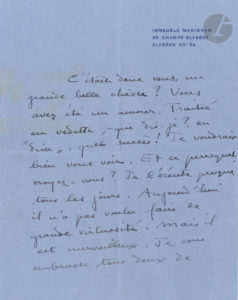 IMMEUBLE MARIGNAN
33 CHAMPS-ELYSÉES
ELYSÉES 00-04
C'était donc vous, ma
grande belle chèvre ? Vous
avez été un amour. Traitié
en vedette, que dis-je ? en
"diva", quel succès ! Je voudrais
bien vous voir. Et ce perroquet
croyez-vous ? Je l'écoute presque
tous les jours. Aujourd'hui
il n'a pas voulu faire de
grande virtuosité. Mais il
est merveilleux. Je vous
embrasse tous deux de